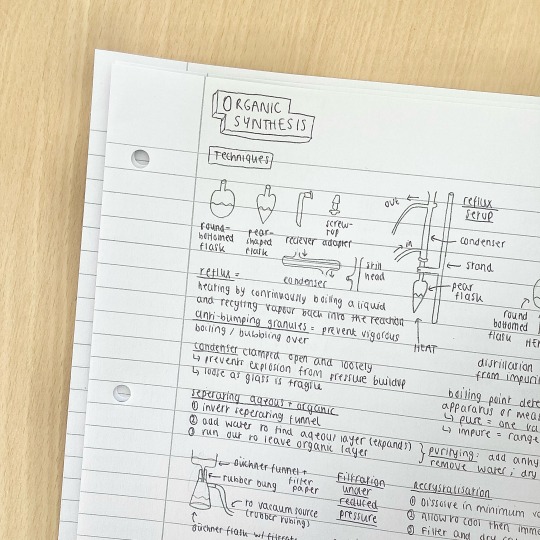 ORGANIC
SYNTHESIS
Techniques
round-
bottomed
flask
pear-
shaped
flask
reciever
screw-
top
adapter
out
in
reflux
setup
condenser
stand
pear
flask
HEAT
round
bottomed
flask
condenser
still
head
reflux =
heating by continuously boiling a liquid
and recycling vapour back into the reaction
anti-bumping granules = prevent vigorous
boiling / bubbling over
condenser clamped open and loosely
↳ prevents explosion from pressure buildup
↳ loose as glass is fragile
distillation
from impuri
seperating aqeous + organic
① invert seperating funnel
② add water to find aqeous layer (expands)
③ run out to leave organic layer
boiling point dete
apparatus or mea
↳ pure = one va
↳ impure = range
purifying: add anhy
remove water; dry
büchner funnel +
filter
paper
rubber bung
to vacuum source
(rubber tubing)
büchner flask w/ filtrate
Filtration
under
reduced
pressure
Recrystalisation
① Dissolve in minimum v
② Allow to cool then imm
③ Filter and dry